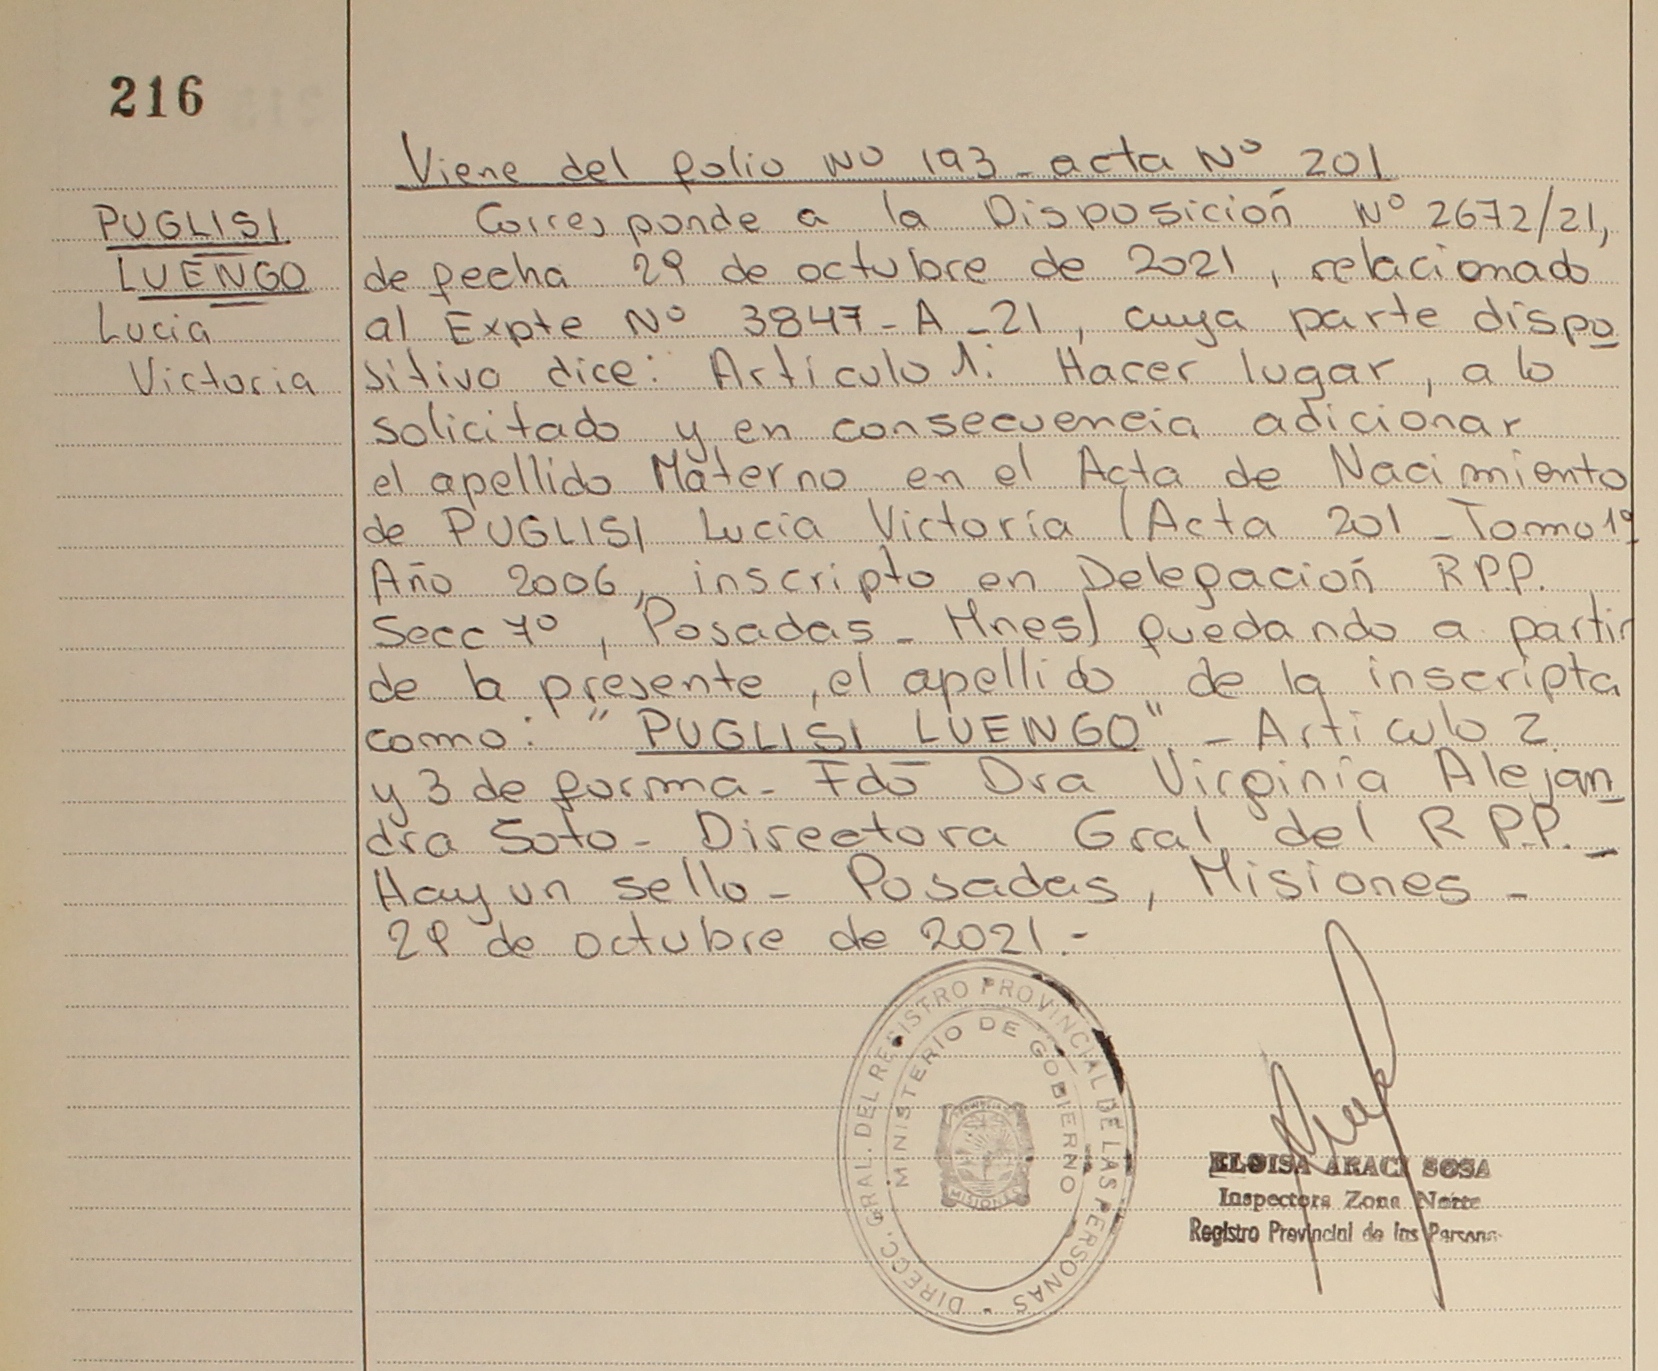 216
Viene del folio Nº 193 - acta Nº 201
PUGLISI
LUENGO
Lucia
Victoria
Corresponde a la Disposición Nº 2672/21,
de fecha 29 de octubre de 2021, relacionado
al Expte Nº 3847-A-21, cuya parte dispo
sitiva dice: Artículo 1: Hacer lugar, a lo
solicitado y en consecuencia adicionar
el apellido Materno en el Acta de Nacimiento
de PUGLISI Lucía Victoria (Acta 201 - Tomo 1º
Año 2006, inscripto en Delegación R.P.P.
Secc 7º, Posadas - Mnes) quedando a partir
de la presente, el apellido de la inscripta
como: "PUGLISI LUENGO" - Artículo 2
y 3 de forma - Fdo Dra Virginia Alejan
dra Soto - Directora Gral del R P.P. -
Hay un sello - Posadas, Misiones -
29 de octubre de 2021.-
DIRECC. GRAL. DEL REGISTRO PROVINCIAL DE LAS PERSONAS
MINISTERIO DE GOBIERNO
MISIONES
ELOISA ARACI SOSA
Inspectora Zona Norte
Registro Provincial de las Personas